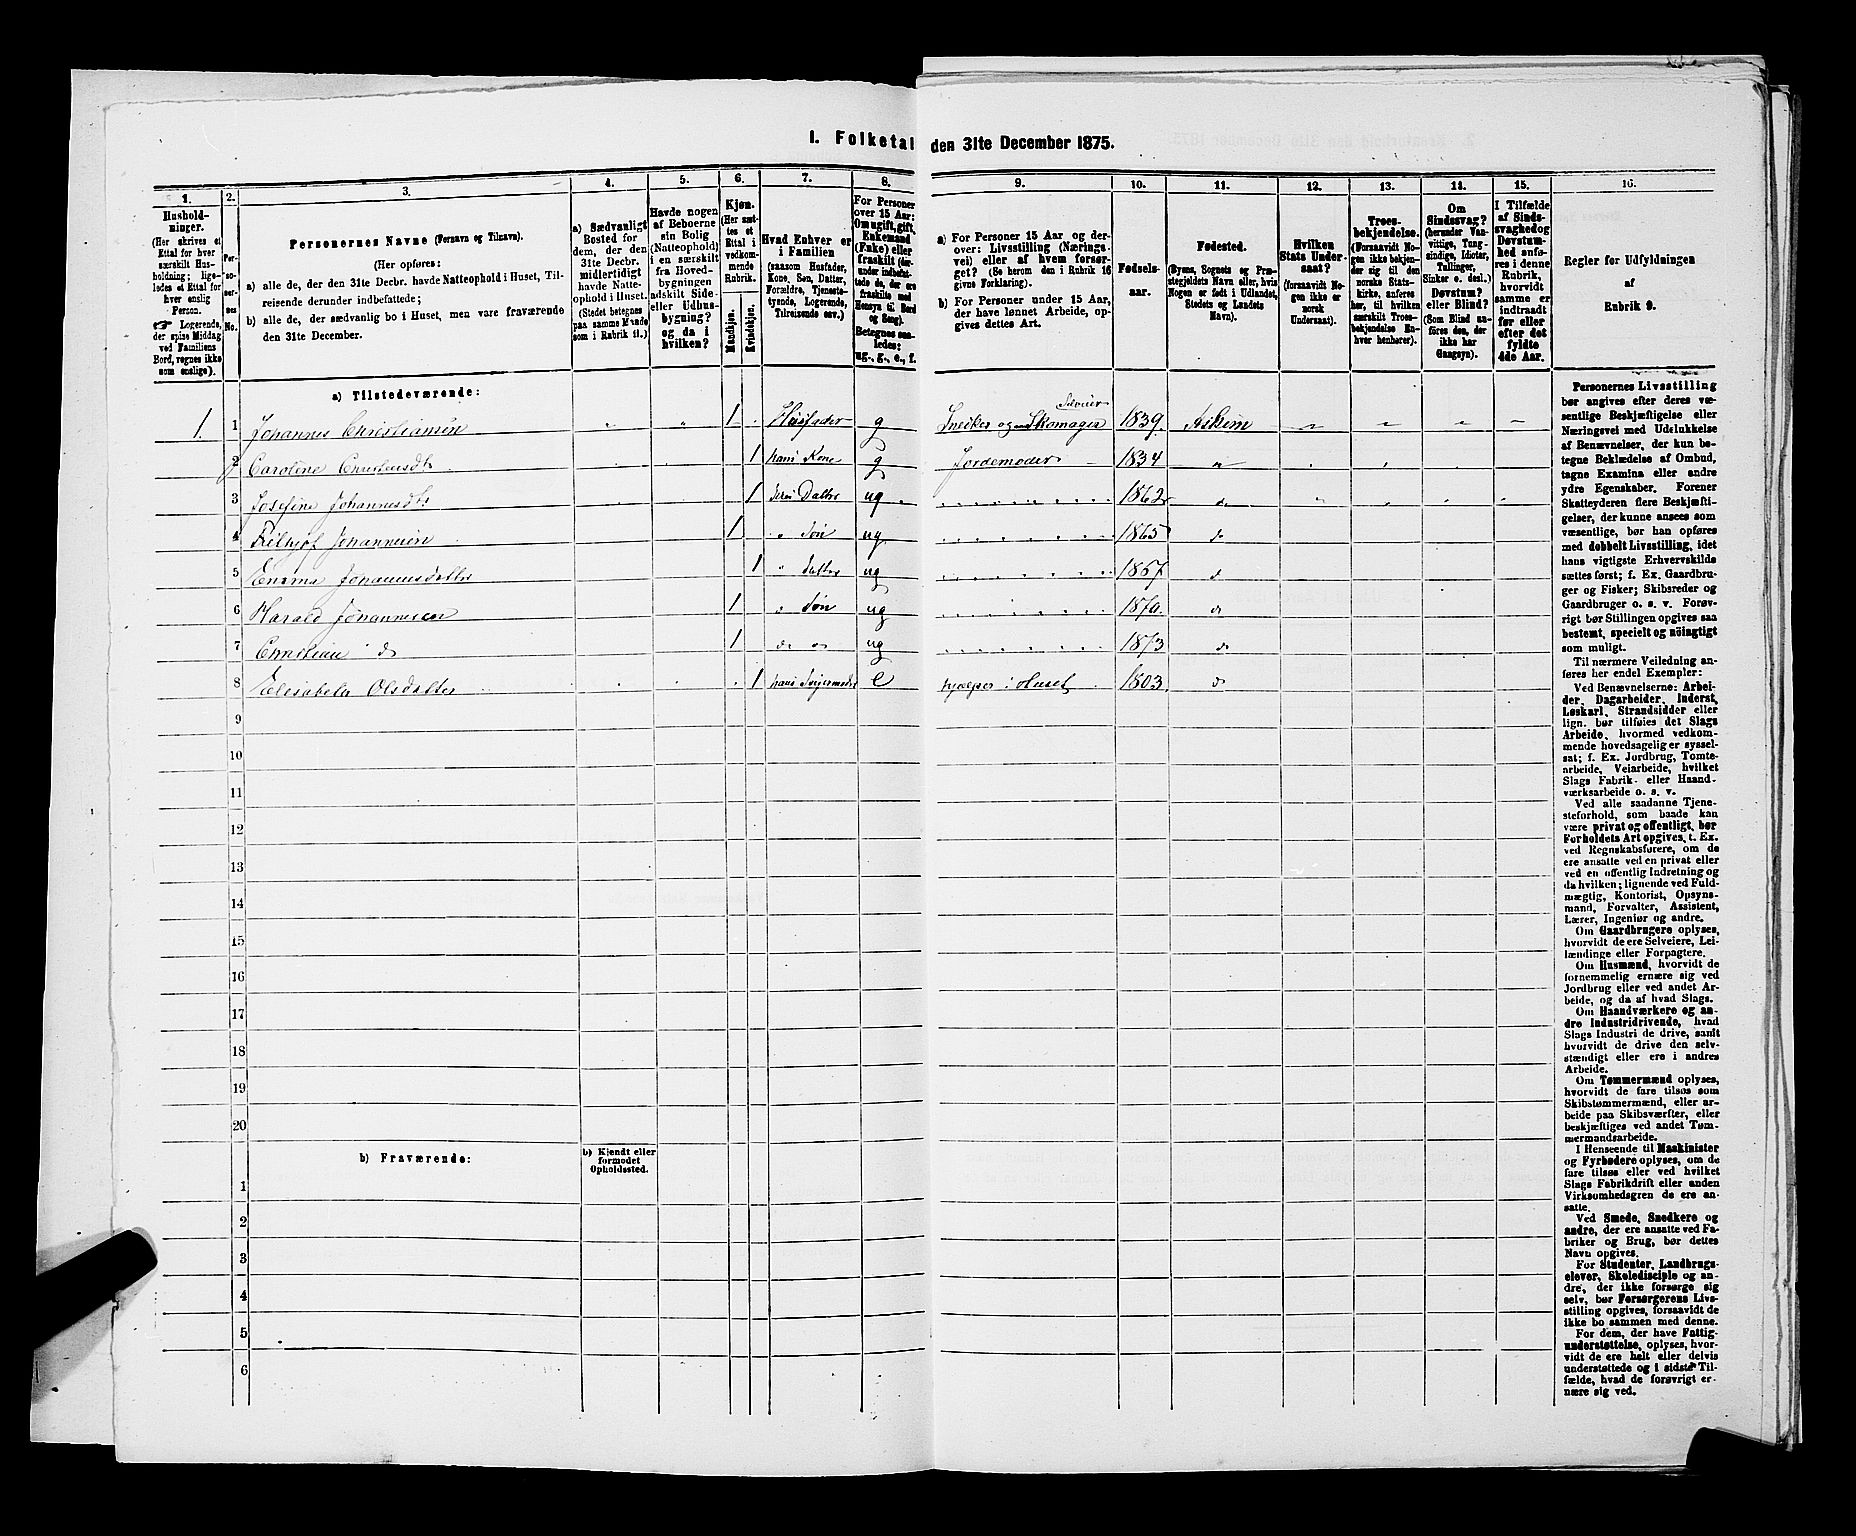 1. Folketal den 31te December 1875.
1.
2.
3.
4.
5.
6.
7.
8.
9.
10.
11.
12.
13.
14.
15.
16.
Hushold-
ninger.
(Her skrives et
Ettal for hver
særskilt Hus-
holdning; lige-
ledes et Ettal for
hver enslig
Person.
☞ Logerende,
der spise Middag
ved Familiens
Bord, regnes ikke
som enslige).
Per-
so-
ner-
nes
No.
Personernes Navne (Fornavn og Tilnavn).
(Her opføres:
a) alle de, der den 31te Decbr. havde Natteophold i Huset, Til-
reisende derunder indbefattede;
b) alle de, der sædvanlig bo i Huset, men vare fraværende
den 31te December.
a) Sædvanligt
Bosted for
dem, der den
31te Decbr.
midlertidigt
havde Natte-
ophold i Huset.
(Stedet betegnes
paa samme Maade
som i Rubrik 11.)
Havde nogen
af Beboerne
sin Bolig
(Natteophold)
i en særskilt
fra Hoved-
bygningen
adskilt Side-
eller Udhus-
bygning?
og da i
hvilken?
Kjøn.
(Her sæt-
tes et
Ettal i
vedkom-
mende
Rubrik.
Mandkjøn.
Kvindekjøn.
Hvad Enhver er
i Familien
(saasom Husfader,
Kone, Søn, Datter,
Forældre, Tjeneste-
tyende, Logerende,
Tilreisende osv.)
For Personer
over 15 Aar:
Om ugift, gift,
Enkemand
(Enke) eller
fraskilt (der-
under indbefat-
tede de, der ere
fraskilte med
Hensyn til Bord
og Seng).
Betegnes saa-
ledes:
ug., g., e., f.
a) For Personer 15 Aar og der-
over: Livsstilling (Nærings-
vei) eller af hvem forsør-
get? (Se herom den i Rubrik 16
givne Forklaring).
b) For Personer under 15 Aar,
der have lønnet Arbeide, op-
gives dettes Art.
Fødsels-
aar.
Fødested.
(Byens, Sognets og Præ-
stegjeldets Navn eller, hvis
Nogen er født i Udlandet,
Stedets og Landets
Navn).
Hvilken
Stats Under-
saat?
(forsaavidt No-
gen ikke er
norsk
Undersaat).
Troes-
bekjendelse.
(Forsaavidt No-
gen ikke bekjen-
der sig til den
norske Stats-
kirke, anføres
her, til hvilken
særskilt Troes-
bekjendelse En-
hver henhører).
Om
Sindssvag?
(herunder Van-
vittige, Tung-
sindige, Idioter,
Tullinger,
Sinker o. desl.)
Døvstum?
eller Blind?
(Som Blind an-
føres den, der
ikke har
Gangsyn).
I Tilfælde
af Sinds-
svaghed og
Døvstum-
hed anfø-
res i denne
Rubrik,
hvorvidt
samme er
indtraadt
før eller
efter det
fyldte
4de Aar.
Regler for Udfyldningen
af
Rubrik 9.
a) Tilstedeværende:
1. 1 Johannes Christiansen 1 Husfader g Snedker og Skomager Selveier 1839 Askim
2 Caroline Christensdtr 1 hans Kone g Jordemoder 1834 "
3 Josefine Johannesdtr 1 deres Datter ug 1862 do
4 Frithjof Johannesen 1 " Søn ug 1865 do
5 Emma Johannesdatter 1 " Datter ug 1867 do
6 Harald Johannesen 1 " Søn ug 1870 do
7 Christian do 1 do do ug 1873 do
8 Elisabeth Olsdatter 1 hans Svigermoder e hjælper i Huset 1803 do
9
10
11
12
13
14
15
16
17
18
19
20
b) Fraværende:
b) Kjendt eller
formodet
Opholdssted.
1
2
3
4
5
6
Personernes Livsstilling
bør angives efter deres væ-
sentlige Beskjæftigelse eller
Næringsvei med Udelukkelse
af Benævnelser, der kun be-
tegne Beklædelse af Ombud,
tagne Examina eller andre
ydre Egenskaber. Forener
Skatteyderen flere Beskjæfti-
gelser, der kunne ansees som
væsentlige, bør han opføres
med dobbelt Livsstilling, idet
hans vigtigste Erhvervskilde
sættes først; f. Ex. Gaardbru-
ger og Fisker; Skibsreder og
Gaardbruger o. s. v. Forøv-
rigt bør Stillingen opgives saa
bestemt, specielt og nöiagtigt
som muligt.
Til nærmere Veiledning an-
føres her endel Exempler:
Ved Benævnelserne: Arbei-
der, Dagarbeider, Inderst,
Løskarl, Strandsidder eller
lign. bør tilføies det Slags
Arbeide, hvormed vedkom-
mende hovedsagelig er syssel-
sat; f. Ex. Jordbrug, Tomte-
arbeide, Veiarbeide, hvilket
Slags Fabrik- eller Haand-
værksarbeide o. s. v.
Ved alle saadanne Tjene-
steforhold, som baade kan
være privat og offentligt, bør
Forholdets Art opgives, t. Ex.
ved Regnskabsførere, om de
ere ansatte ved en privat eller
ved en offentlig Indretning og
da hvilken; lignende ved Fuld-
mægtig, Kontorist, Opsyns-
mand, Forvalter, Assistent,
Lærer, Ingeniør og andre.
Om Gaardbrugere oplyses,
hvorvidt de ere Selveiere, Lei-
lændinge eller Forpagtere.
Om Husmænd, hvorvidt de
fornemmelig ernære sig ved
Jordbrug eller ved andet Ar-
beide, og da af hvad Slags.
Om Haandværkere og an-
dre Industridrivende, hvad
Slags Industri de drive, samt
hvorvidt de drive den selv-
stændigt eller ere i andres
Arbeide.
Om Tømmermænd oplyses,
hvorvidt de fare tilsøs som
Skibstømmermænd, eller ar-
beide paa Skibsværfter, eller
beskjæftiges ved andet Tøm-
mermandsarbeide.
I Henseende til Maskinister
og Fyrbødere oplyses, om de
fare tilsøs eller ved hvilket
Slags Fabrikdrift eller anden
Virksomhedsgren de ere an-
satte.
Ved Smede, Snedkere og
andre, der ere ansatte ved Fa-
briker og Brug, bør dettes
Navn opgives.
For Studenter, Landbrugs-
elever, Skoledisciple og an-
dre, der ikke forsørge sig
selv, bør Forsørgerens Livs-
stilling opgives, forsaavidt de
ikke bo sammen med denne.
For dem, der have Fattig-
understøttelse, oplyses, hvor-
vidt de ere helt eller delvis
understøttede og i sidste Til-
fælde, hvad de forøvrigt er-
nære sig ved.